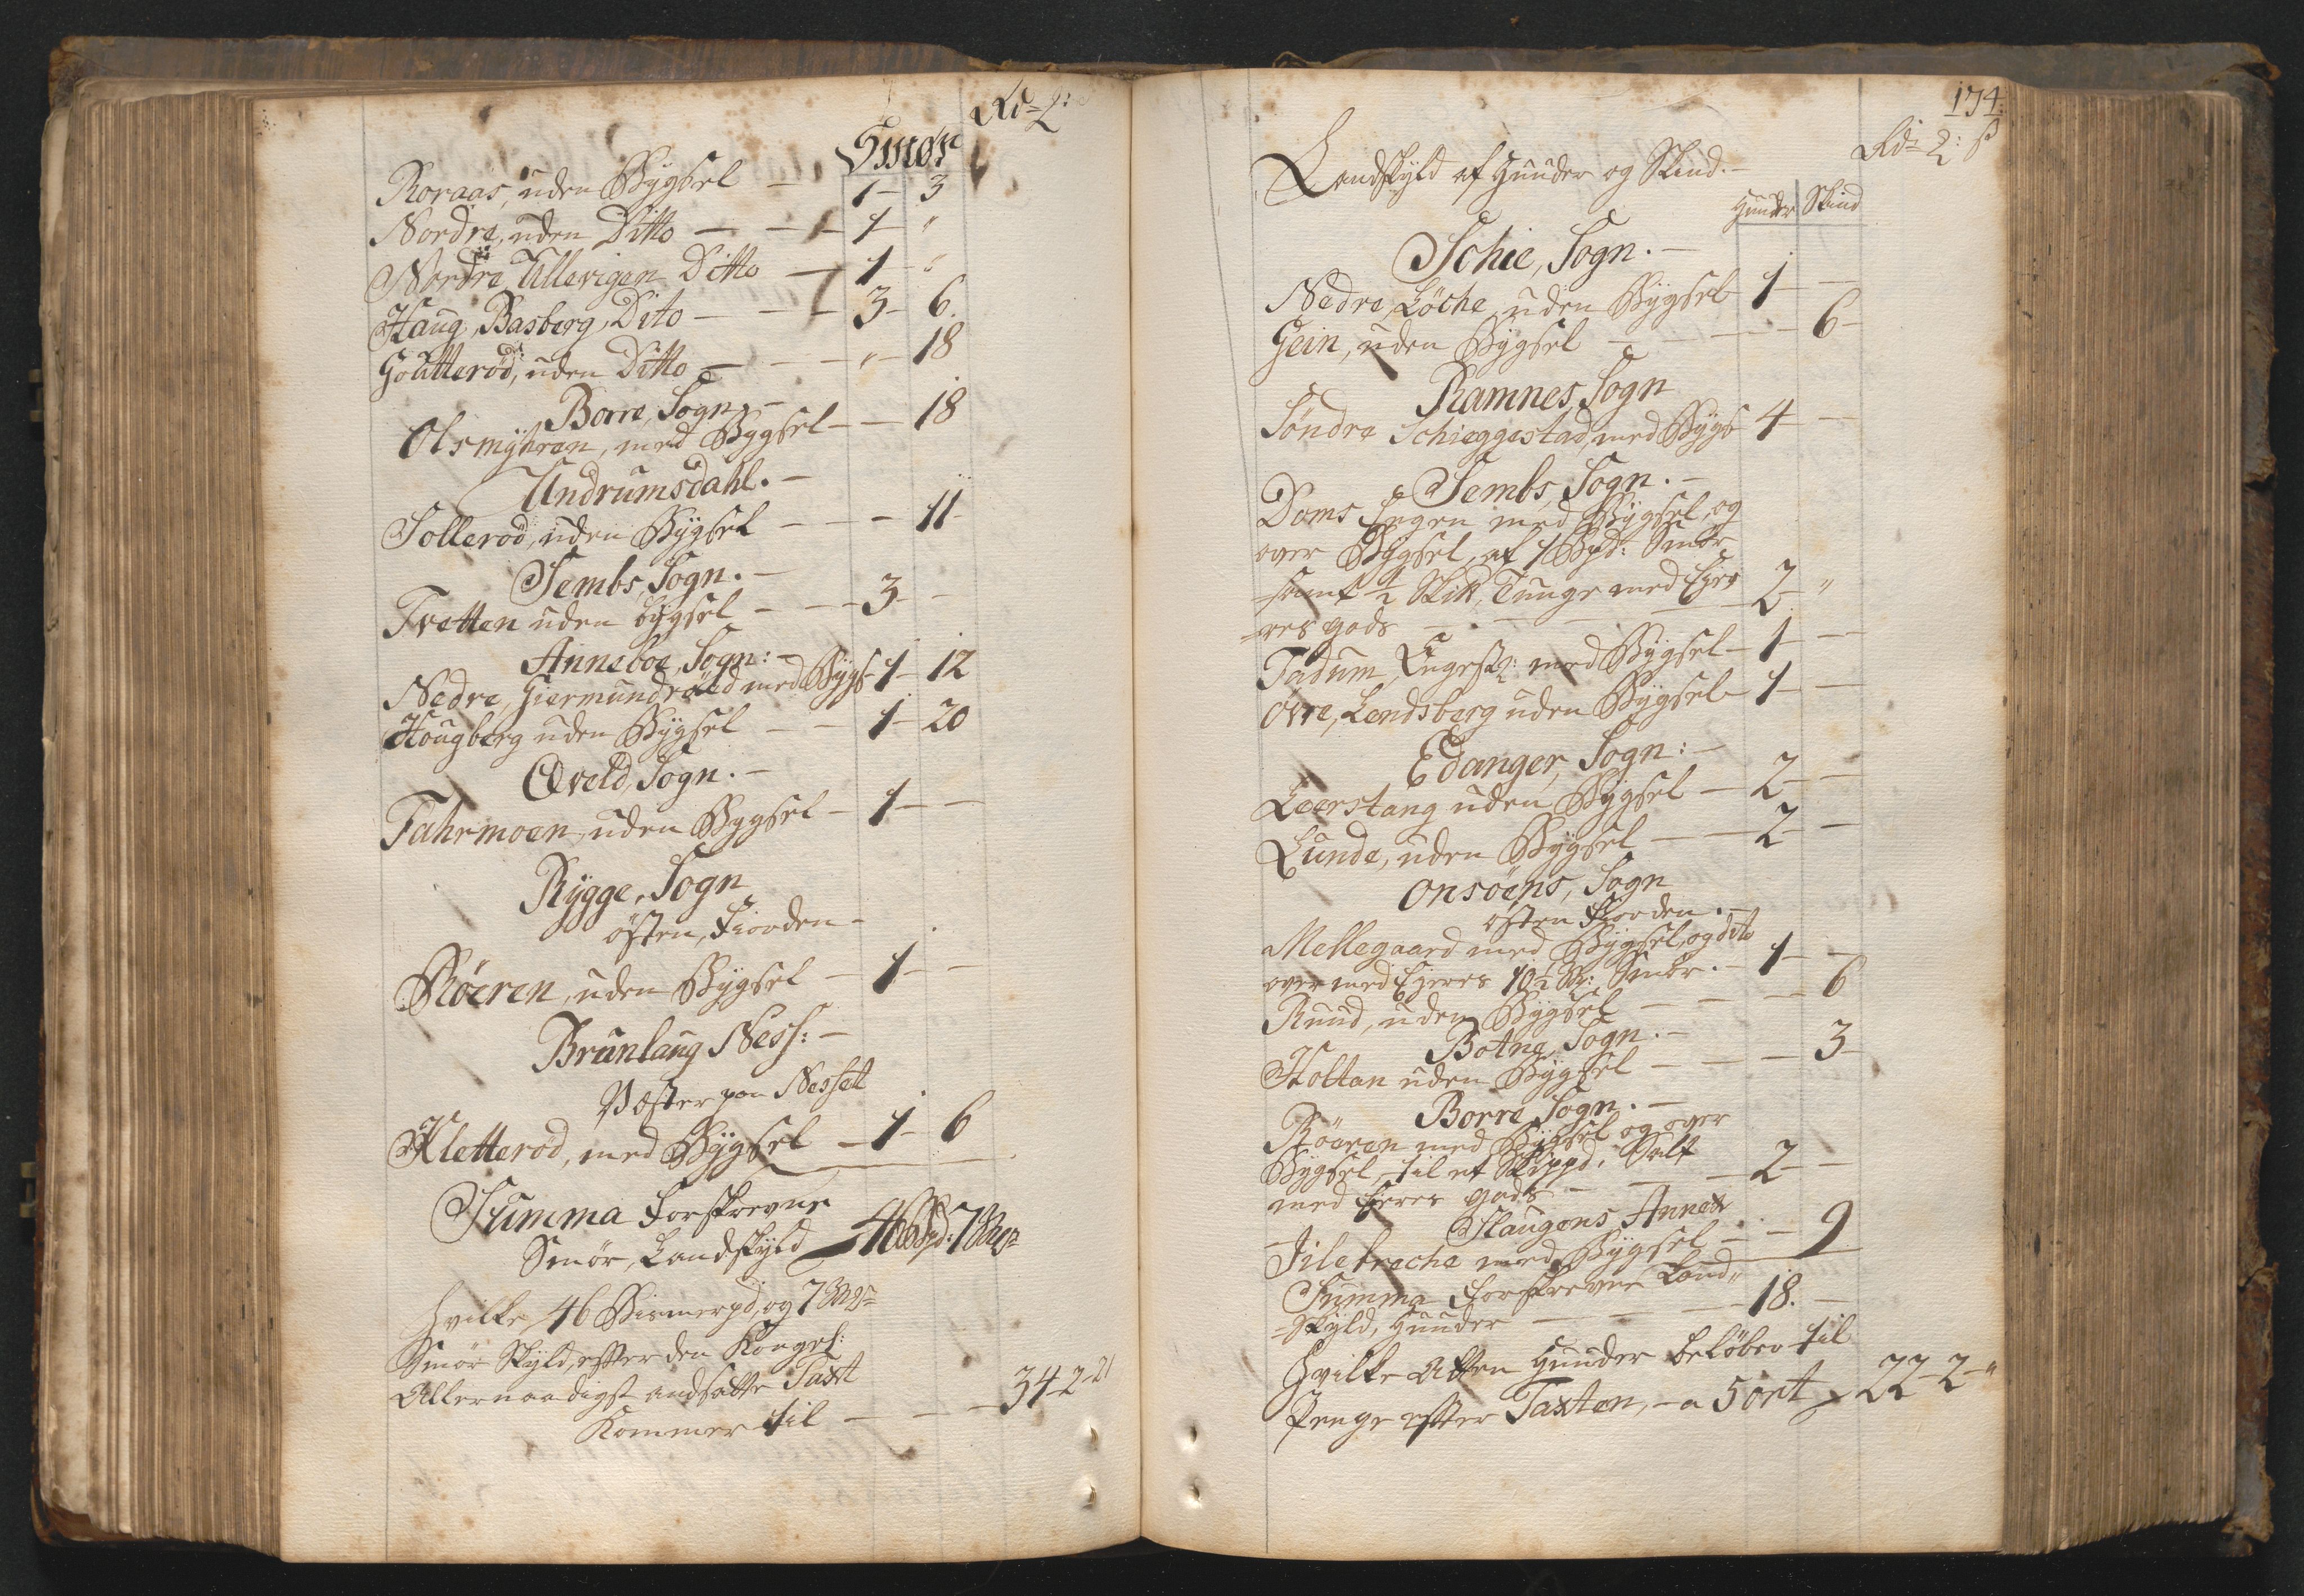 Rd 2:
Smør
Roraas, uden Bÿgsel — 1 - 3
Nordre, uden Ditto — — 1 - "
Nordre Ullevigen Ditto — 1 - "
Haug, Basberg, Dito — — 3 - 6.
Goutterød, uden Ditto — — " - 18
Borre, Sogn. —
Olsmÿhren, med Bygsel — — 18
Undrumsdahl. —
Sollerød, uden Bÿgsel — — — 11
Sembs, Sogn. —
Tvetten uden bÿgsel — — — 3 - -
Anneboe, Sogn: —
Nedre, Giermundrøed med Bÿgs 1 - 12
Hougberg uden Bÿgsel — — 1 - 20
Qveld, Sogn. —
Fahrmoen, uden Bygsel — 1 - —
Rÿgge, Sogn
østen, Fiorden —
Røeren, uden Bÿgsel — 1 - —
Brunlaug Ness: —
Vester paa Nessett
Kletterød, med Bÿgsel — 1 - 6
Summa Forskrevne
Smør, Landskyld — 46 Bpd: 7 Mrk
Hvilke, 46 Bismerpd, og 7 Mrk
Smør Skyld, efter den Kongel:
Allernaadigst andsatte Taxt
Kommer til — — — 34 - 2 - 21
174.
Rd 2: ß
Landskÿld af Huuder og Skind. —
Huuder Skind
Schie, Sogn. —
Nedre, Løche, uden Bÿgsel 1 — —
Gein, uden Bÿgsel — — — 6 -
Ramnes Sogn
Søndre Schieggestad, med Bÿgs 4 — —
Sembs, Sogn. —
Doms Engen med Bÿgsel, og
over Bÿgsel, af 1 Bpd: Smør
samt ½ Skill, Tunge med Ejer
=res gods — — — — 2 - "
Tadum, Engestÿ: med Bÿgsel — 1 — —
Ovre, Lendsberg uden Bÿgsel — 1 — —
Edanger, Sogn: —
Leerstang uden Bÿgsel — 2 — —
Lunde, uden Bÿgsel — — 2 — —
Onsøens, Sogn
østen Fiorden. —
Mellegaard med Bÿgsel, og dito
over med Ejeres 10½ Mk: Smør. — 1 — —
Ruud, uden Bÿgsel — — — 6
Botne, Sogn. —
Holtan uden Bÿgsel — — — 3
Borre, Sogn. —
Røaren med Bÿgsel og over
Bÿgsel, til et Skippd, Salt
med Ejeres gods — — — 2 — —
Slaugens Annex
Jilebreche med Bÿgsel — — 9
Summa Forskrevne Land=
=Skÿld, Huuder — — — 18. —
Hvilke Atten Huuder beløber til
Penge efter Taxten, — a 5 ort — 22 - 2 - "